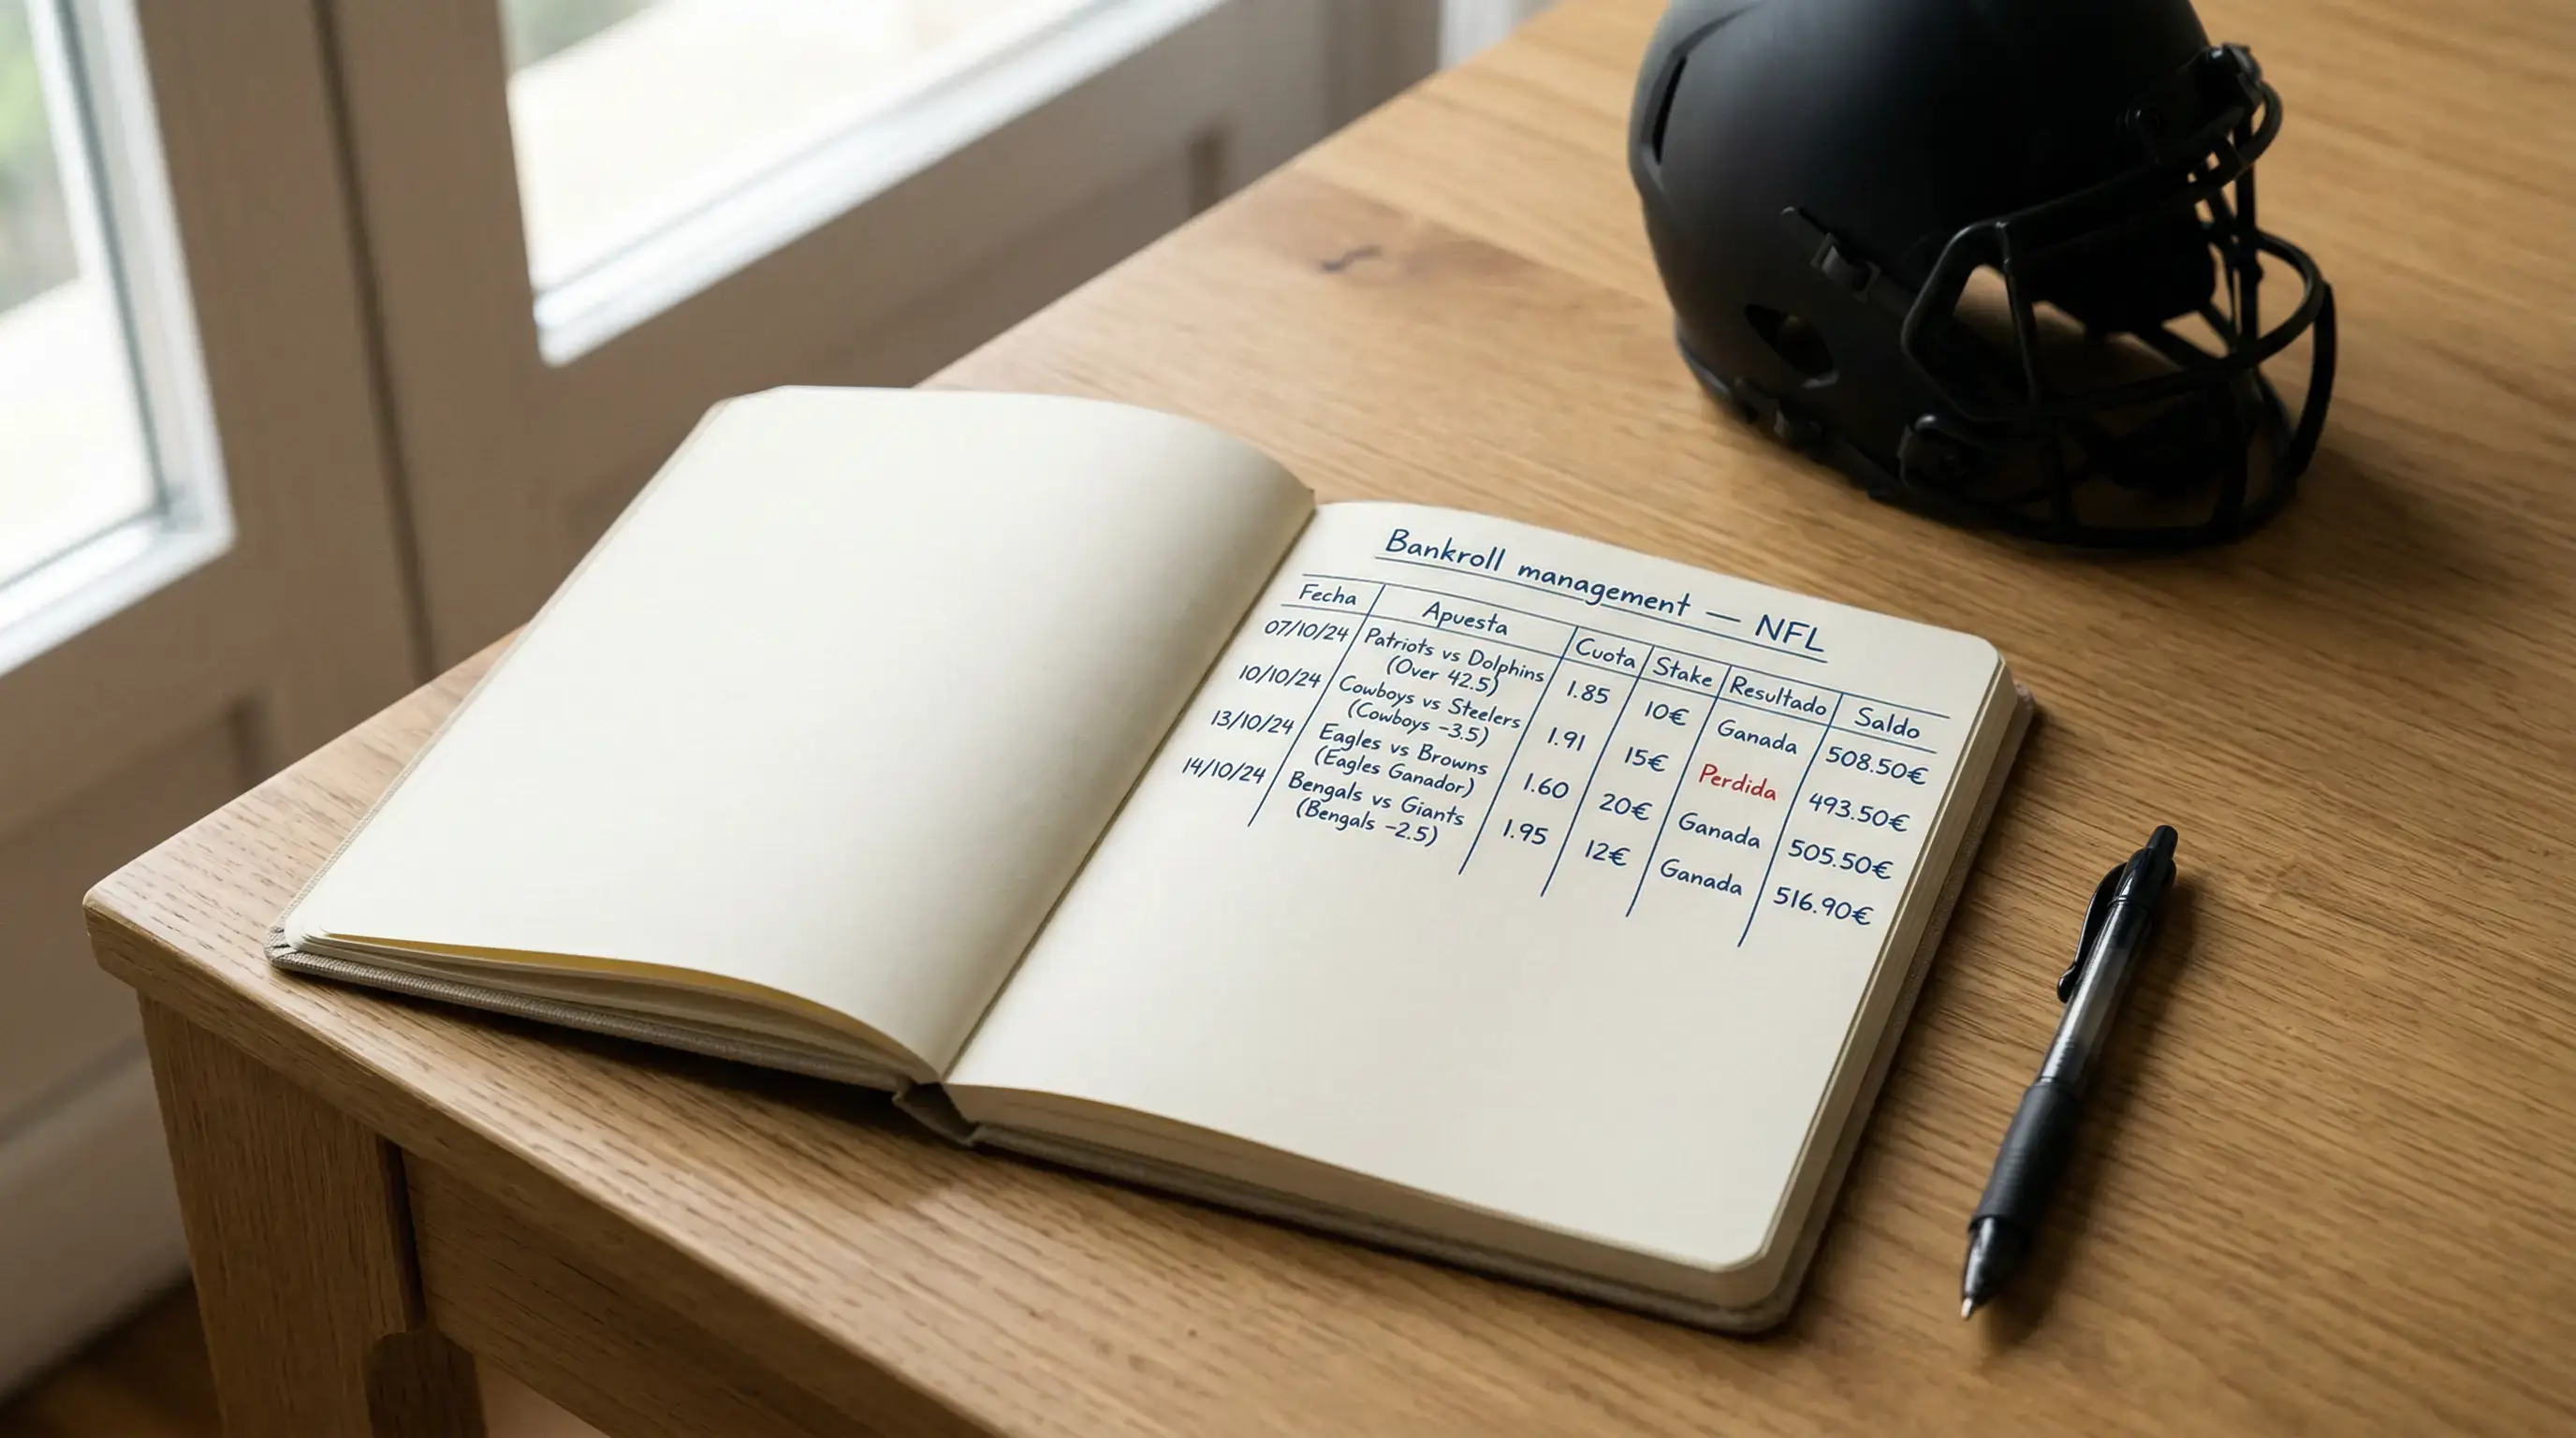 Bankroll management — NFL
Fecha Apuesta Cuota Stake Resultado Saldo
07/10/24 Patriots vs Dolphins 1.85 10€ Ganada 508.50€
(Over 42.5)
10/10/24 Cowboys vs Steelers 1.91 15€ Perdida 493.50€
(Cowboys -3.5)
13/10/24 Eagles vs Browns 1.60 20€ Ganada 505.50€
(Eagles Ganador)
14/10/24 Bengals vs Giants 1.95 12€ Ganada 516.90€
(Bengals -2.5)